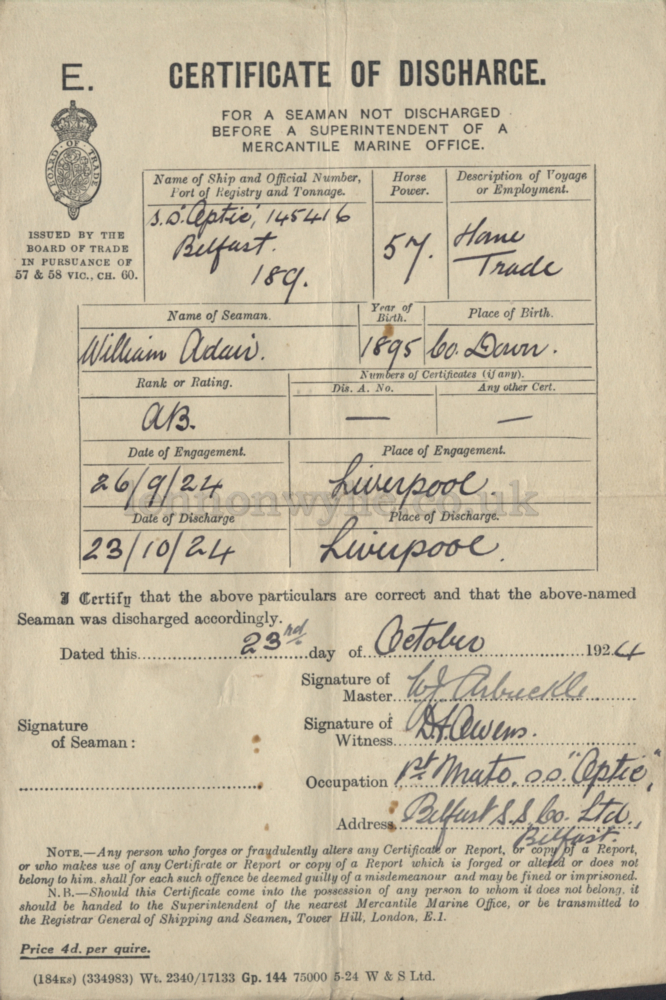 E. CERTIFICATE OF DISCHARGE.
FOR A SEAMAN NOT DISCHARGED
BEFORE A SUPERINTENDENT OF A
MERCANTILE MARINE OFFICE.
BOARD OF TRADE
ISSUED BY THE
BOARD OF TRADE
IN PURSUANCE OF
57 & 58 VIC., CH. 60.
Name of Ship and Official Number,
Port of Registry and Tonnage.
Horse
Power.
Description of Voyage
or Employment.
S.S. "Optic", 145416
Belfast.
189.
57.
Home
Trade
Name of Seaman.
Year of
Birth.
Place of Birth.
William Adair.
1895
Co. Down.
Rank or Rating.
Numbers of Certificates (if any).
Dis. A. No.
Any other Cert.
AB.
—
—
Date of Engagement.
Place of Engagement.
26/9/24
Liverpool.
Date of Discharge
Place of Discharge.
23/10/24
Liverpool.
I Certify that the above particulars are correct and that the above-named
Seaman was discharged accordingly.
Dated this 23rd day of October 1924
Signature of
Master W J Arbuckle.
Signature
of Seaman:
Signature of
Witness Owens.
Occupation 1st Mate. s.s. "Optic",
Address Belfast S.S. Co. Ltd.,
Belfast
NOTE.—Any person who forges or fraudulently alters any Certificate or Report, or copy of a Report,
or who makes use of any Certificate or Report or copy of a Report which is forged or altered or does not
belong to him, shall for each such offence be deemed guilty of a misdemeanour and may be fined or imprisoned.
N.B.—Should this Certificate come into the possession of any person to whom it does not belong, it
should be handed to the Superintendent of the nearest Mercantile Marine Office, or be transmitted to
the Registrar General of Shipping and Seamen, Tower Hill, London, E.1.
Price 4d. per quire.
(184Ks) (334983) Wt. 2340/17133 Gp. 144 75000 5-24 W & S Ltd.